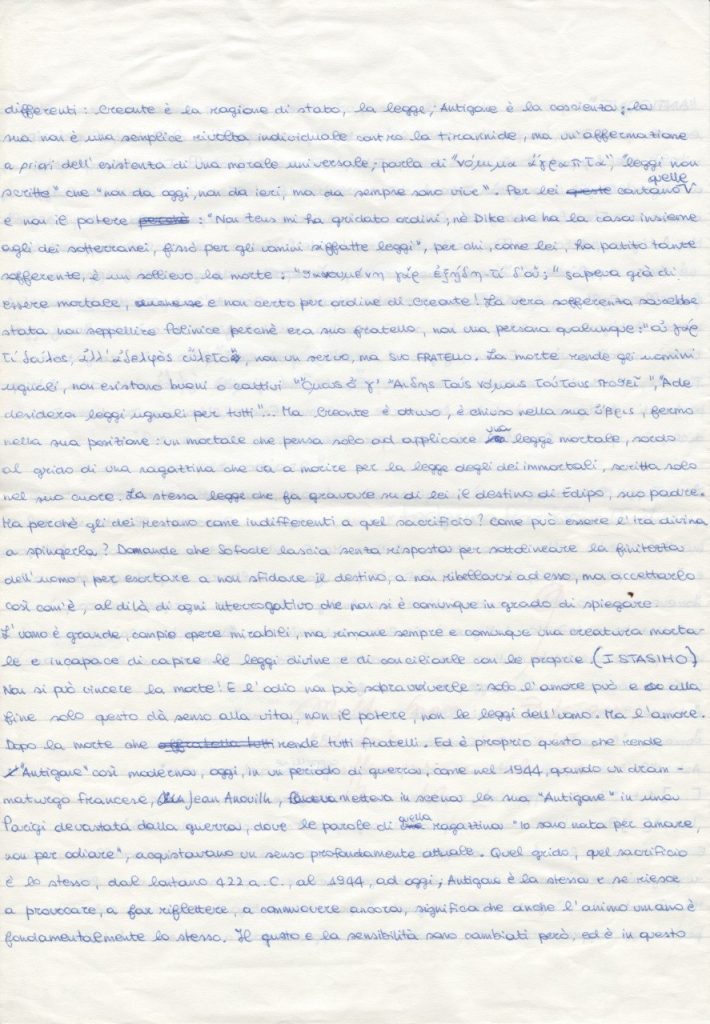 differenti: Creonte è la ragione di stato, la legge; Antigone è la coscienza; la
sua non è una semplice rivolta individuale contro la tirannide, ma un'affermazione
a priori dell'esistenza di una morale universale; parla di "νόμιμα ἄγραπτα", "leggi non
scritte" che "non da oggi, non da ieri, ma da sempre sono vive". Per lei contano quelle
e non il potere: "Non Zeus mi ha gridato ordini, nè Dike che ha la casa insieme
agli dei sotterranei, fissò per gli uomini siffatte leggi", per chi, come lei, ha patito tante
sofferente, è un sollievo la morte; τί δ'οὔ;" sapeva già di
essere mortale, e non certo per ordine di Creonte! La vera sofferenza sarebbe
stata non seppellire Polinice perchè era suo fratello, non una persona qualunque: "οὐ γάρ
τι δοῦλος, ἀλλ' ἀδελφὸς ὤλετο", non un servo, ma SUO FRATELLO. La morte rende gli uomini
uguali, non esistono buoni o cattivi "Ὅμως ὅ γ' Ἅιδης τοὺς νόμους τούτους ποθεῖ", "Ade
desidera leggi uguali per tutti"... Ma Creonte è ottuso, è chiuso nella sua ὕβρις, fermo
nella sua posizione: un mortale che pensa solo ad applicare una legge mortale, sordo
al grido di una ragazzina che va a morire per la legge degli dei immortali, scritta solo
nel suo cuore. La stessa legge che fa gravare su di lei il destino di Edipo, suo padre.
Ma perchè gli dei restano come indifferenti a quel sacrificio? Come può essere l'ira divina
a spingerla? Domande che Sofocle lascia senza risposta per sottolineare la finitezza
dell'uomo, per esortare a non sfidare il destino, a non ribellarsi ad esso, ma accettarlo
così com'è, al di là di ogni interrogativo che non si è comunque in grado di spiegare.
L'uomo è grande, compie opere mirabili, ma rimane sempre e comunque una creatura morta-
le e incapace di capire le leggi divine e di conciliarle con le proprie. (I STASIMO)
Non si può vincere la morte! E l'odio non può sopravviverle: solo l'amore può e alla
fine solo questo dà senso alla vita, non il potere, non le leggi dell'uomo. Ma l'amore.
Dopo la morte che rende tutti fratelli. Ed è proprio questo che rende
"Antigone" così moderna, oggi, in un periodo di guerra, come nel 1944, quando un dram-
maturgo francese, Jean Anouilh, metteva in scena la sua "Antigone" in una
Parigi devastata dalla guerra, dove le parole di quella ragazzina "Io sono nata per amare,
non per odiare", acquistavano un senso profondamente attuale. Quel grido, quel sacrificio
è lo stesso, dal lontano 422 a.C., al 1944, ad oggi; Antigone è la stessa e se riesce
a provocare, a far riflettere, a commuovere ancora, significa che anche l'animo umano è
fondamentalmente lo stesso. Il gusto e la sensibilità sono cambiati però, ed è in questo